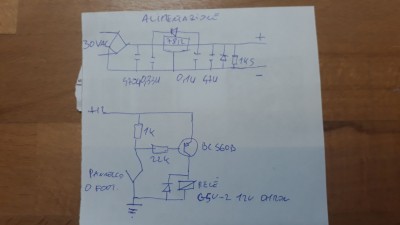 ALIMENTAZIONE
30VAC
7812
+
4700µ 0,33µ 0,1µ 47µ
1K5
-
+12
1K
BC560B
22K
PANNELLO
O FOTO.
RELÉ
G5V-2 12V OMRON